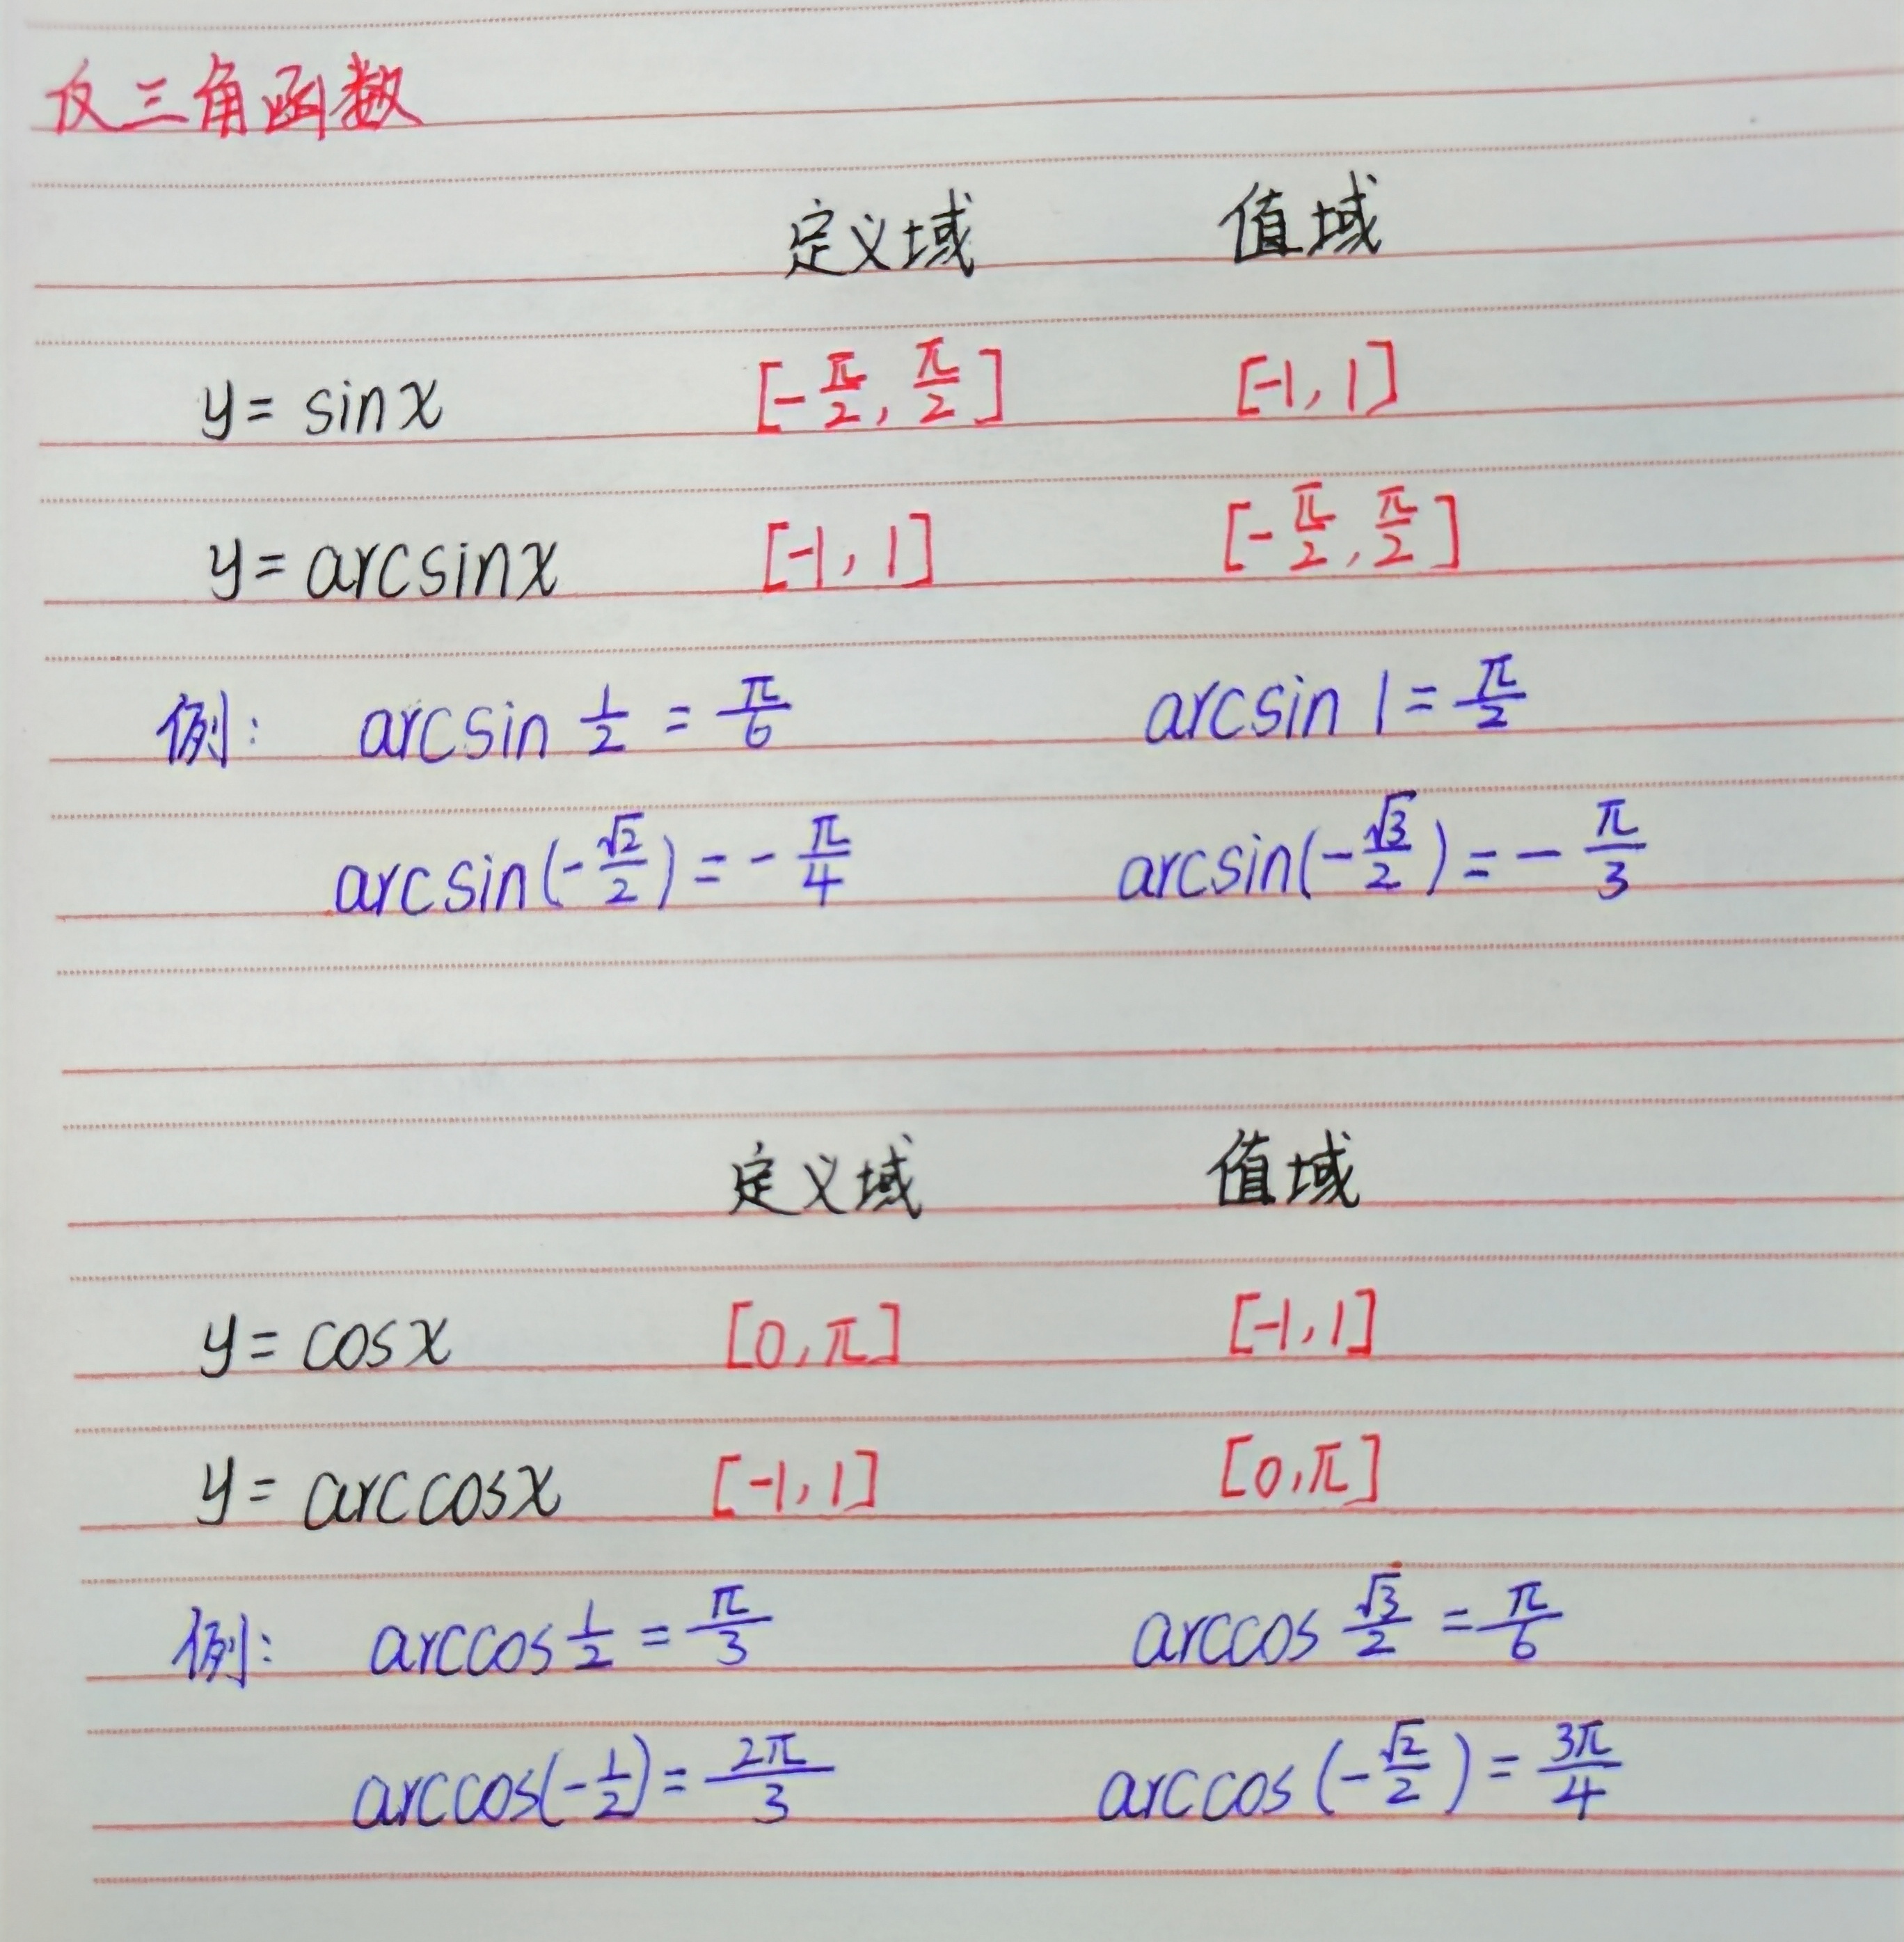 反三角函数
定义域 值域
y = sinx [-π/2, π/2] [-1, 1]
y = arcsinx [-1, 1] [-π/2, π/2]
例: arcsin 1/2 = π/6 arcsin 1 = π/2
arcsin(-√2/2) = -π/4 arcsin(-√3/2) = -π/3
定义域 值域
y = cosx [0, π] [-1, 1]
y = arccosx [-1, 1] [0, π]
例: arccos 1/2 = π/3 arccos √3/2 = π/6
arccos(-1/2) = 2π/3 arccos(-√2/2) = 3π/4